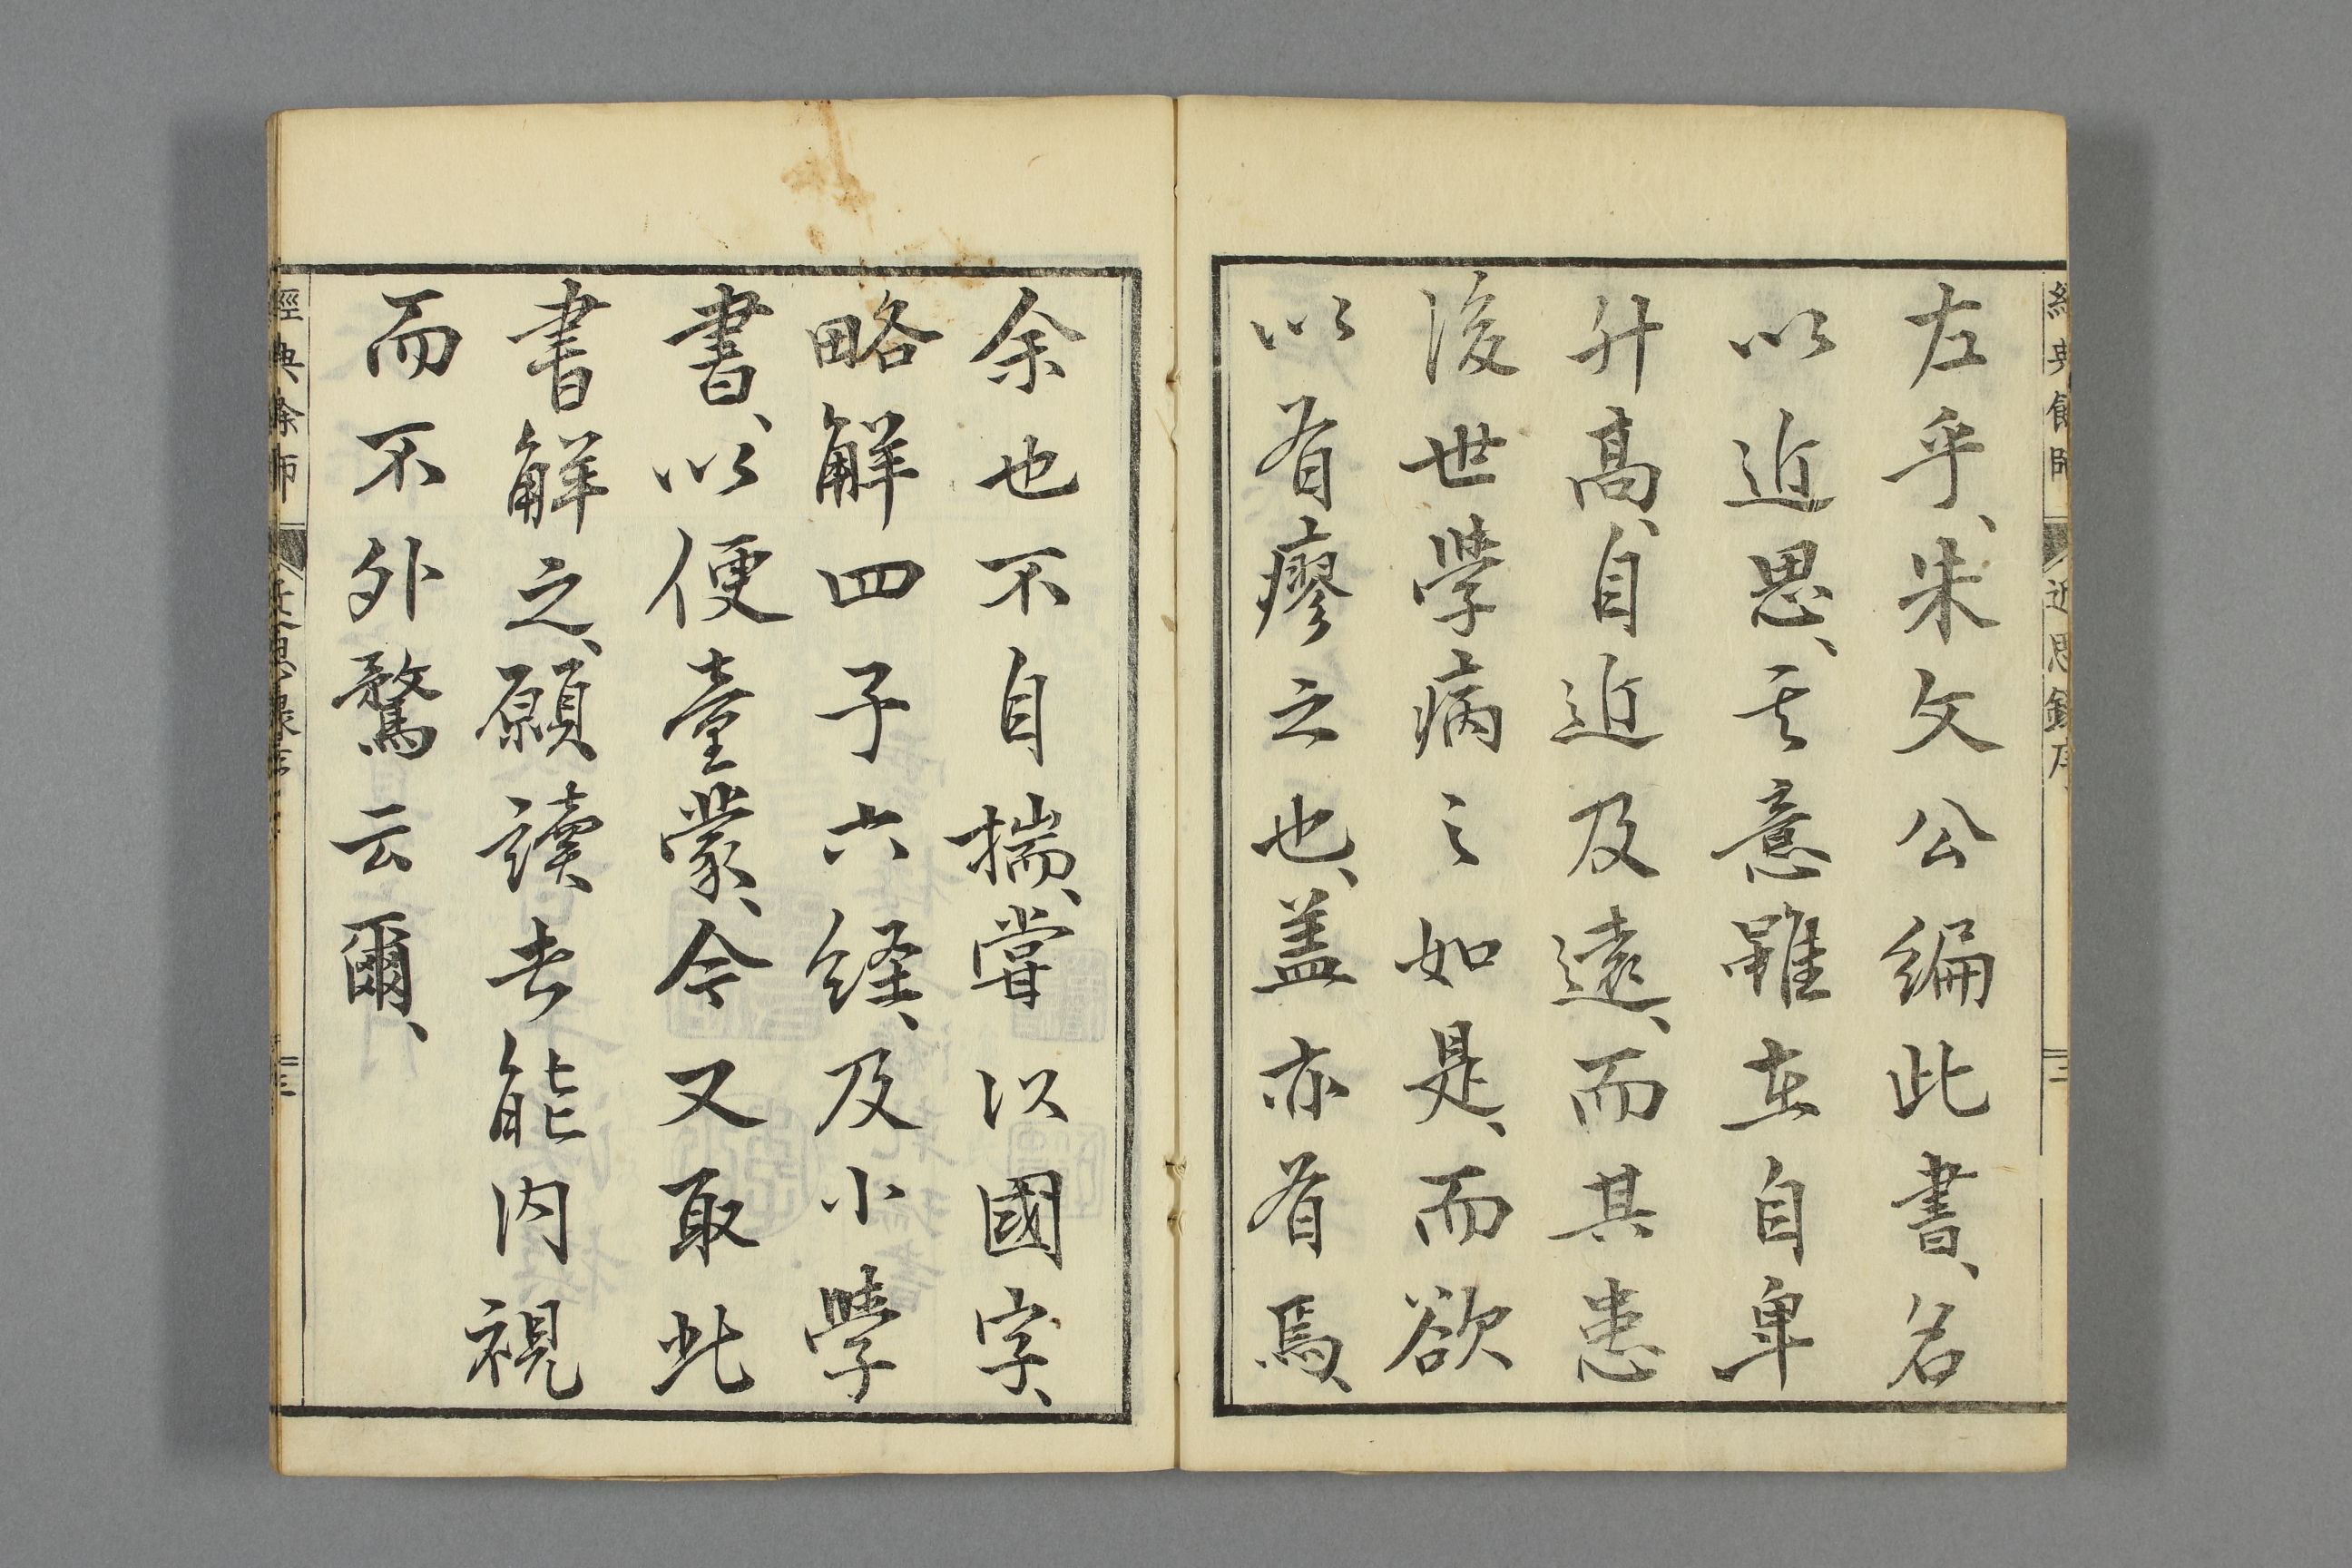 經典餘師 近思錄序 二
左乎、朱文公編此書、名
以近思、其意雖在自卑
升高、自近及遠、而其患
後世學病之如是、而欲
以有瘳之也、蓋亦有焉、
余也不自揣、嘗以國字、
略解四子六經、及小學
書、以便童蒙、今又取此
書解之、願讀者能内視
而不外騖云爾、
經典餘師 近思錄序 三